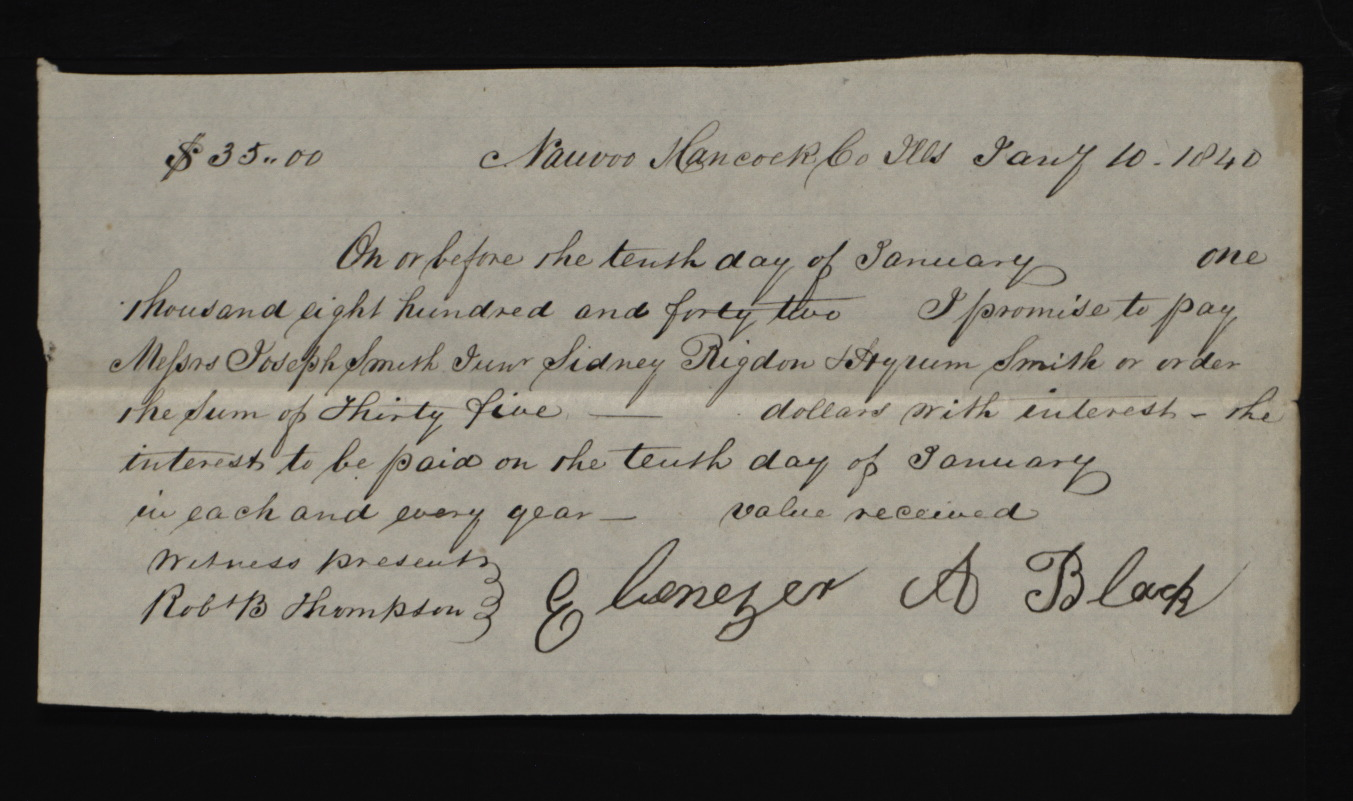 $35..00 Nauvoo Hancock Co Ills Jany 10. 1840
On or before the tenth day of January one
thousand eight hundred and forty two I promise to pay
Messrs Joseph Smith Junr Sidney Rigdon & Hyrum Smith or order
the Sum of Thirty five — dollars with interest - the
interest to be paid on the tenth day of January
in each and every year — value received
Witness present
Robt B Thompson } Ebenezer A Black